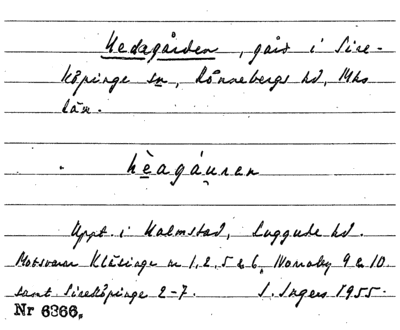 Hedagården, gård i Sire-
köpinge sn, Rönnebergs hd, Mhs
län.
hèagáu̥ren
Uppt. i Halmstad, Luggude hd.
Motsvarar Kläsinge nr 1, 2, 5 & 6, Norraby 9 & 10
samt Sireköpinge 2-7. I. Ingers 1955.
Nr 6366.